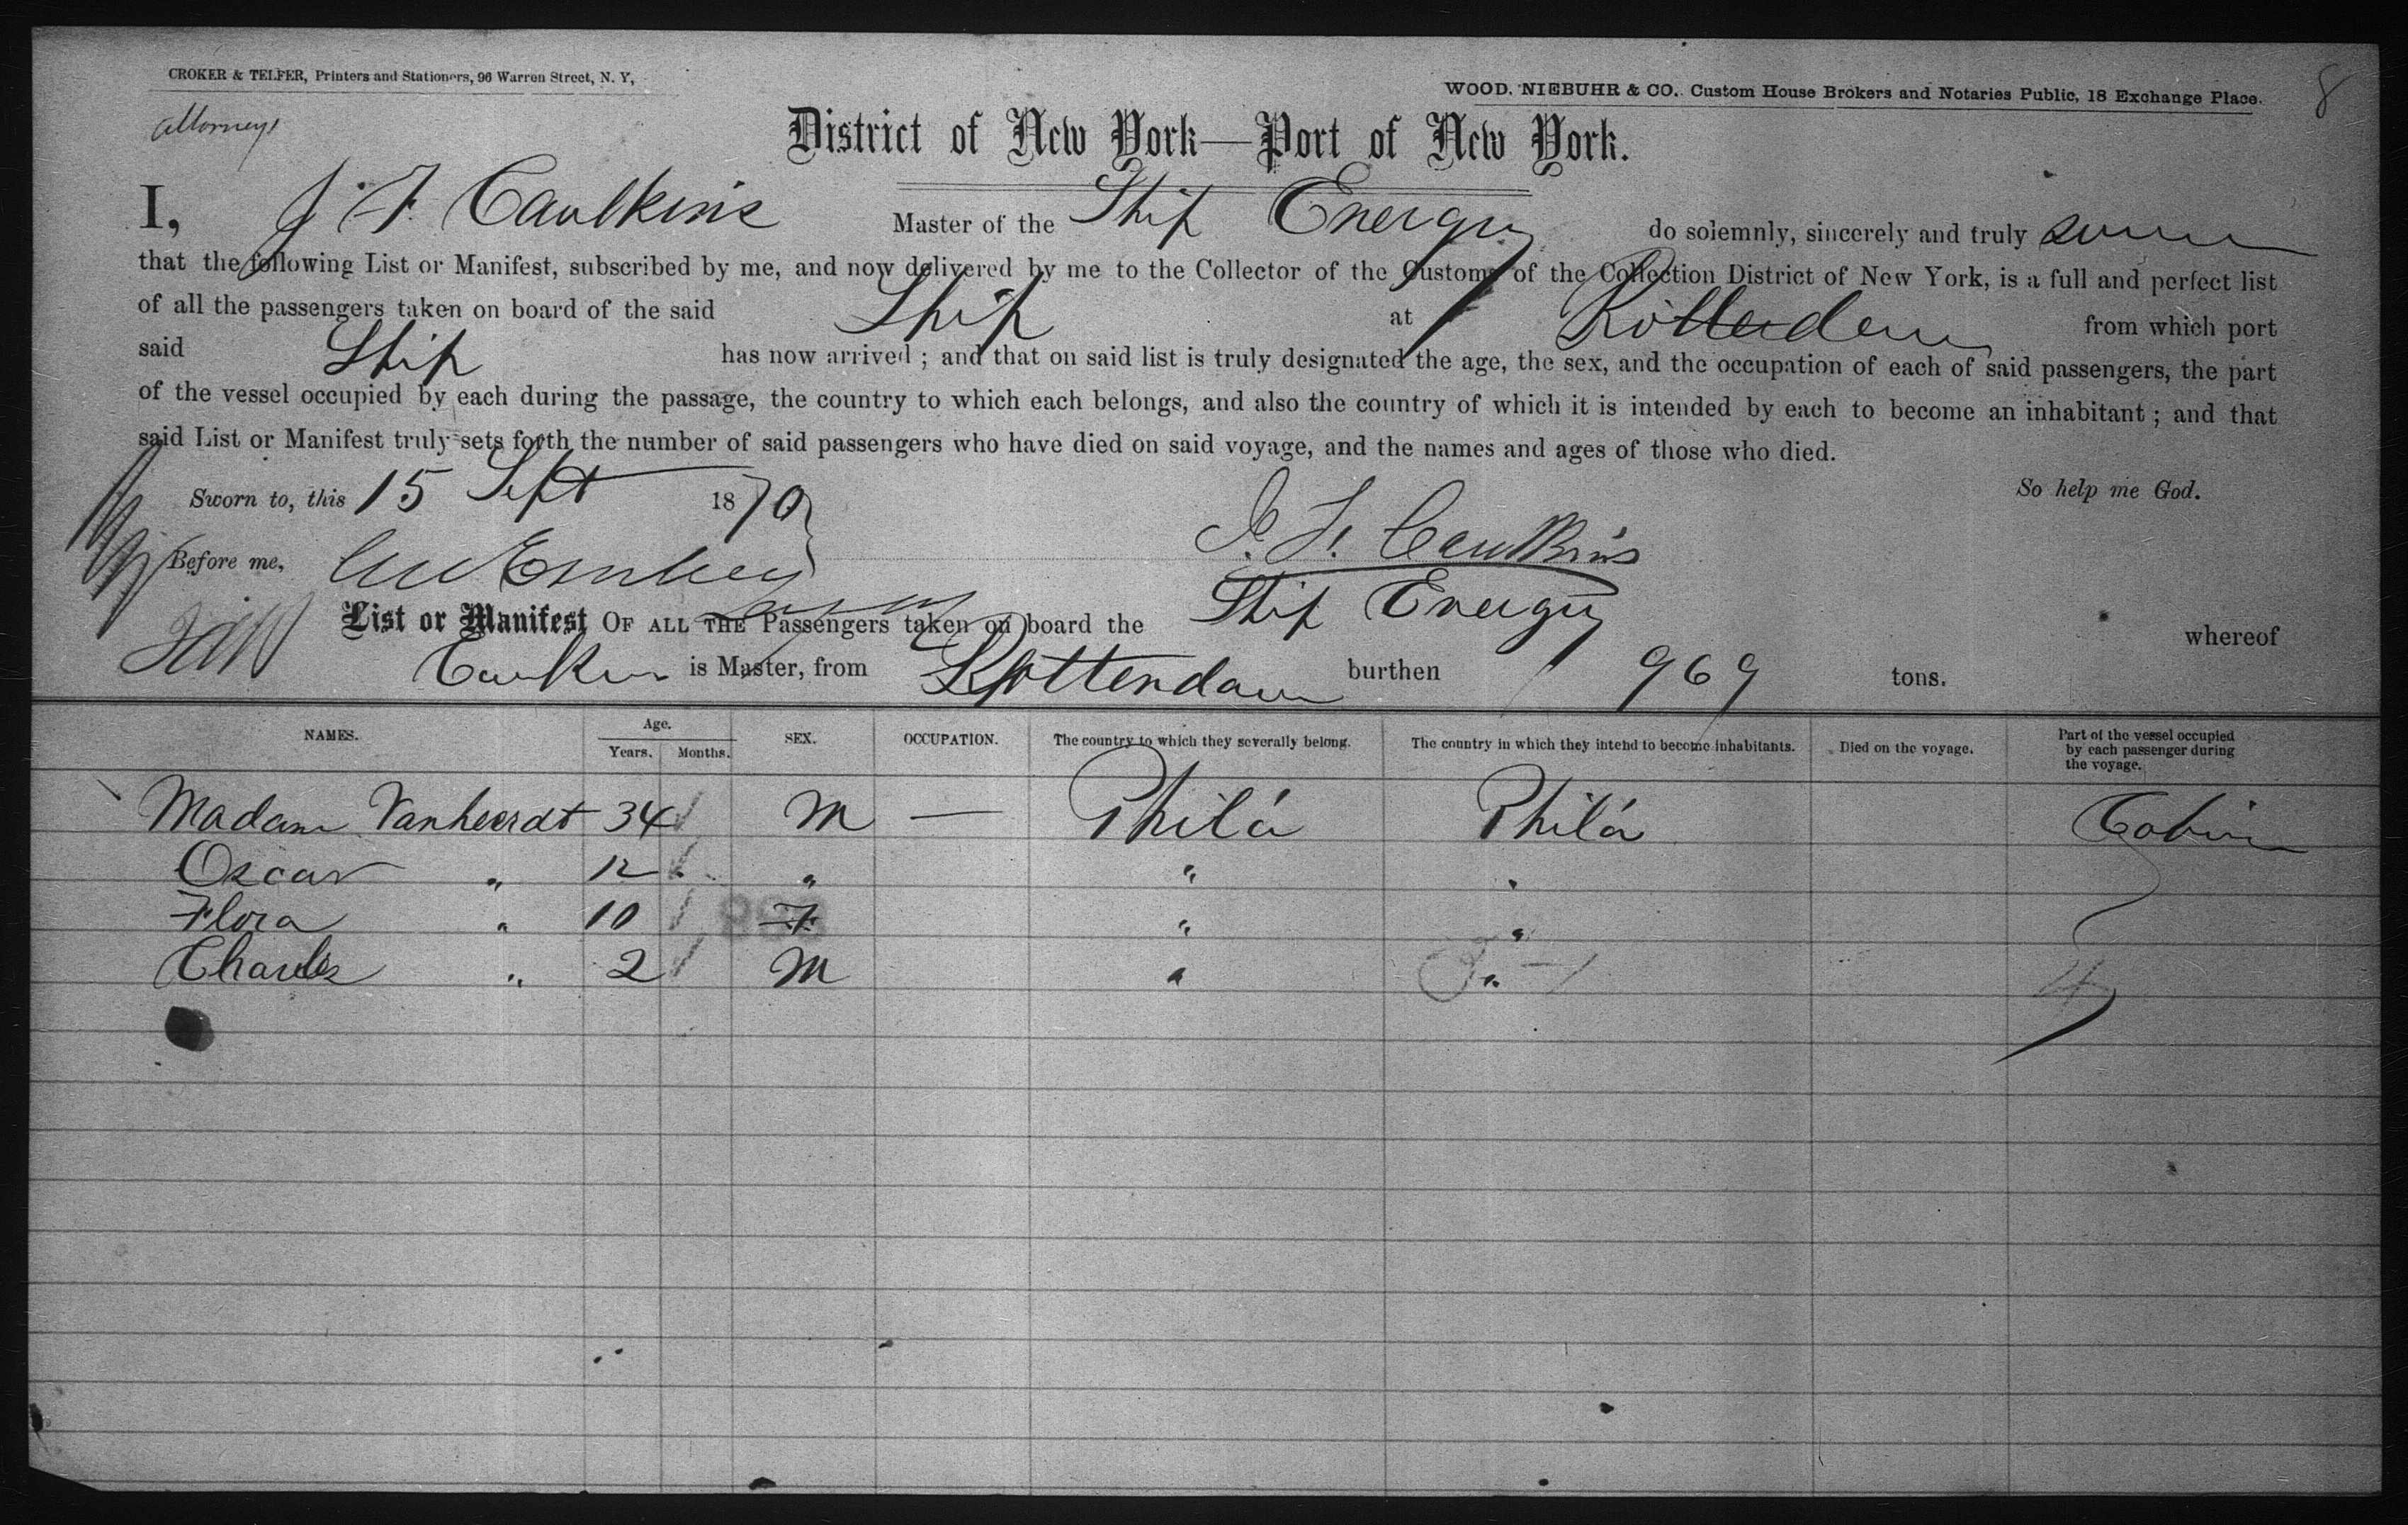 CROKER & TELFER, Printers and Stationers, 96 Warren Street, N. Y,
WOOD. NIEBUHR & CO., Custom House Brokers and Notaries Public, 18 Exchange Place.
8
Attorneys
District of New York—Port of New York.
I, J F. Caulkins Master of the Ship Energy do solemnly, sincerely and truly swear
that the following List or Manifest, subscribed by me, and now delivered by me to the Collector of the Customs of the Collection District of New York, is a full and perfect list
of all the passengers taken on board of the said Ship at Rotterdam from which port
said Ship has now arrived ; and that on said list is truly designated the age, the sex, and the occupation of each of said passengers, the part
of the vessel occupied by each during the passage, the country to which each belongs, and also the country of which it is intended by each to become an inhabitant ; and that
said List or Manifest truly sets forth the number of said passengers who have died on said voyage, and the names and ages of those who died.
Sworn to, this 15 Sept 1870 So help me God.
Before me, J. F. Caulkins
List or Manifest OF ALL THE Passengers taken on board the Ship Energy whereof
is Master, from Rotterdam burthen 969 tons.
NAMES. Age. Years. Months. SEX. OCCUPATION. The country to which they severally belong. The country in which they intend to become inhabitants. Died on the voyage. Part of the vessel occupied by each passenger during the voyage.
Madam Vanheerdt 34 M — Phila Phila Cabin
Oscar " 12 " " "
Flora " 10 F " "
Charles " 2 M " "